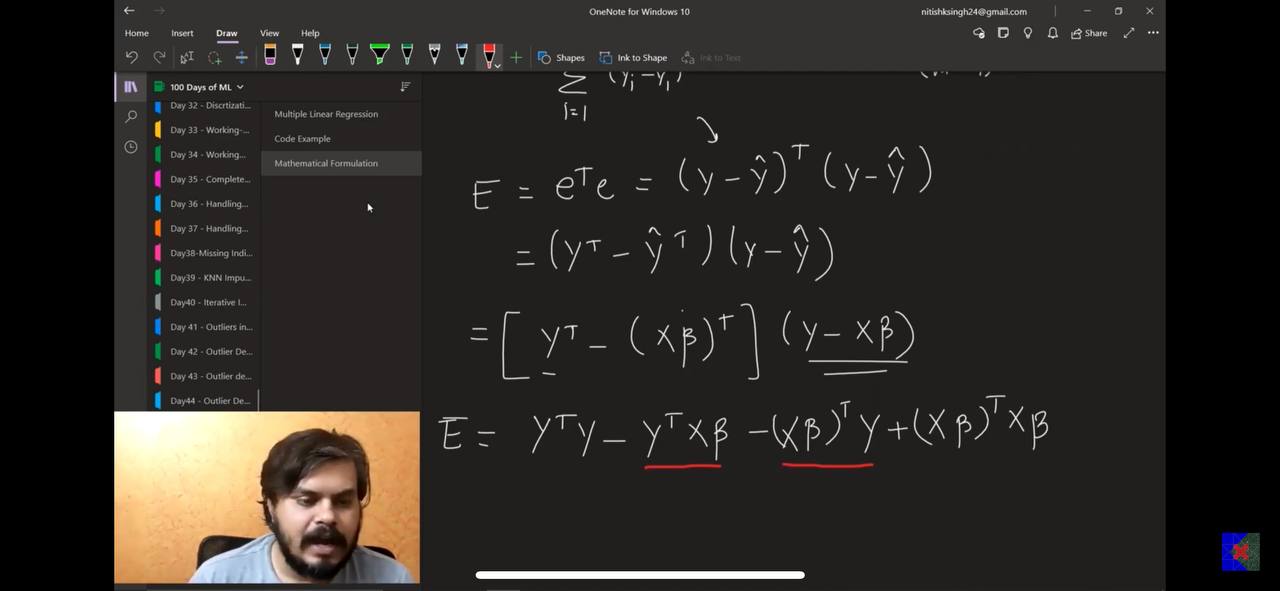 OneNote for Windows 10
nitishksingh24@gmail.com
Home Insert Draw View Help
Share
Shapes Ink to Shape Ink to Text
100 Days of ML
Day 32 - Discrtizati...
Day 33 - Working-...
Day 34 - Working...
Day 35 - Complete...
Day 36 - Handling...
Day 37 - Handling...
Day38-Missing Indi...
Day39 - KNN Impu...
Day40 - Iterative I...
Day 41 - Outliers in...
Day 42 - Outlier De...
Day 43 - Outlier de...
Day44 - Outlier De...
Multiple Linear Regression
Code Example
Mathematical Formulation
∑ (yᵢ - yᵢ)
i=1
E = eᵀe = (y - ŷ)ᵀ (y - ŷ)
= (yᵀ - ŷᵀ) (y - ŷ)
= [yᵀ - (Xβ)ᵀ] (y - Xβ)
E = yᵀy - yᵀXβ - (Xβ)ᵀy + (Xβ)ᵀXβ